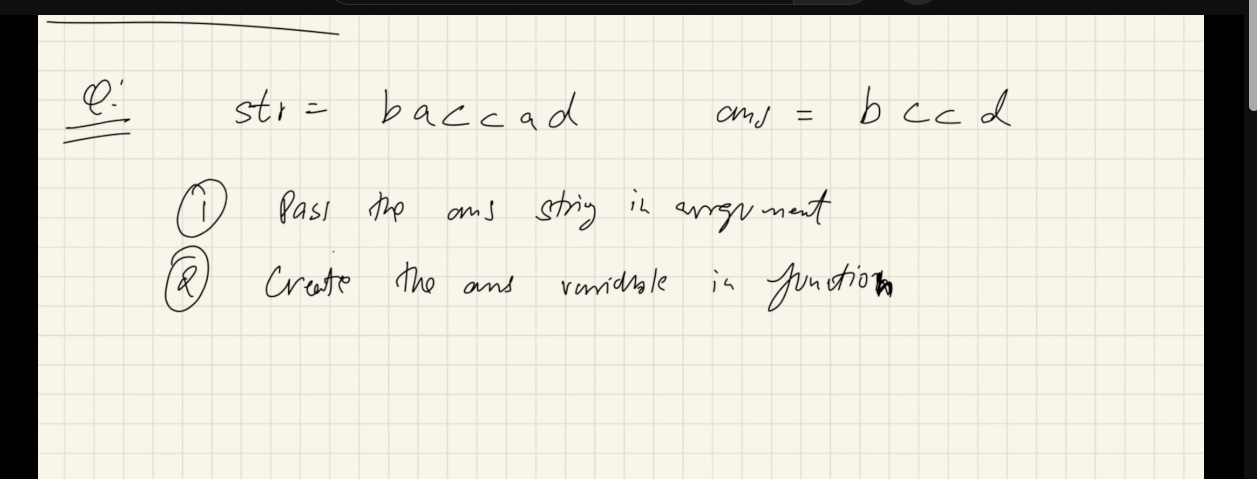 Q: str = baccad ans = bccd
① Pass the ans string in arrgument
② Create the ans variable in function